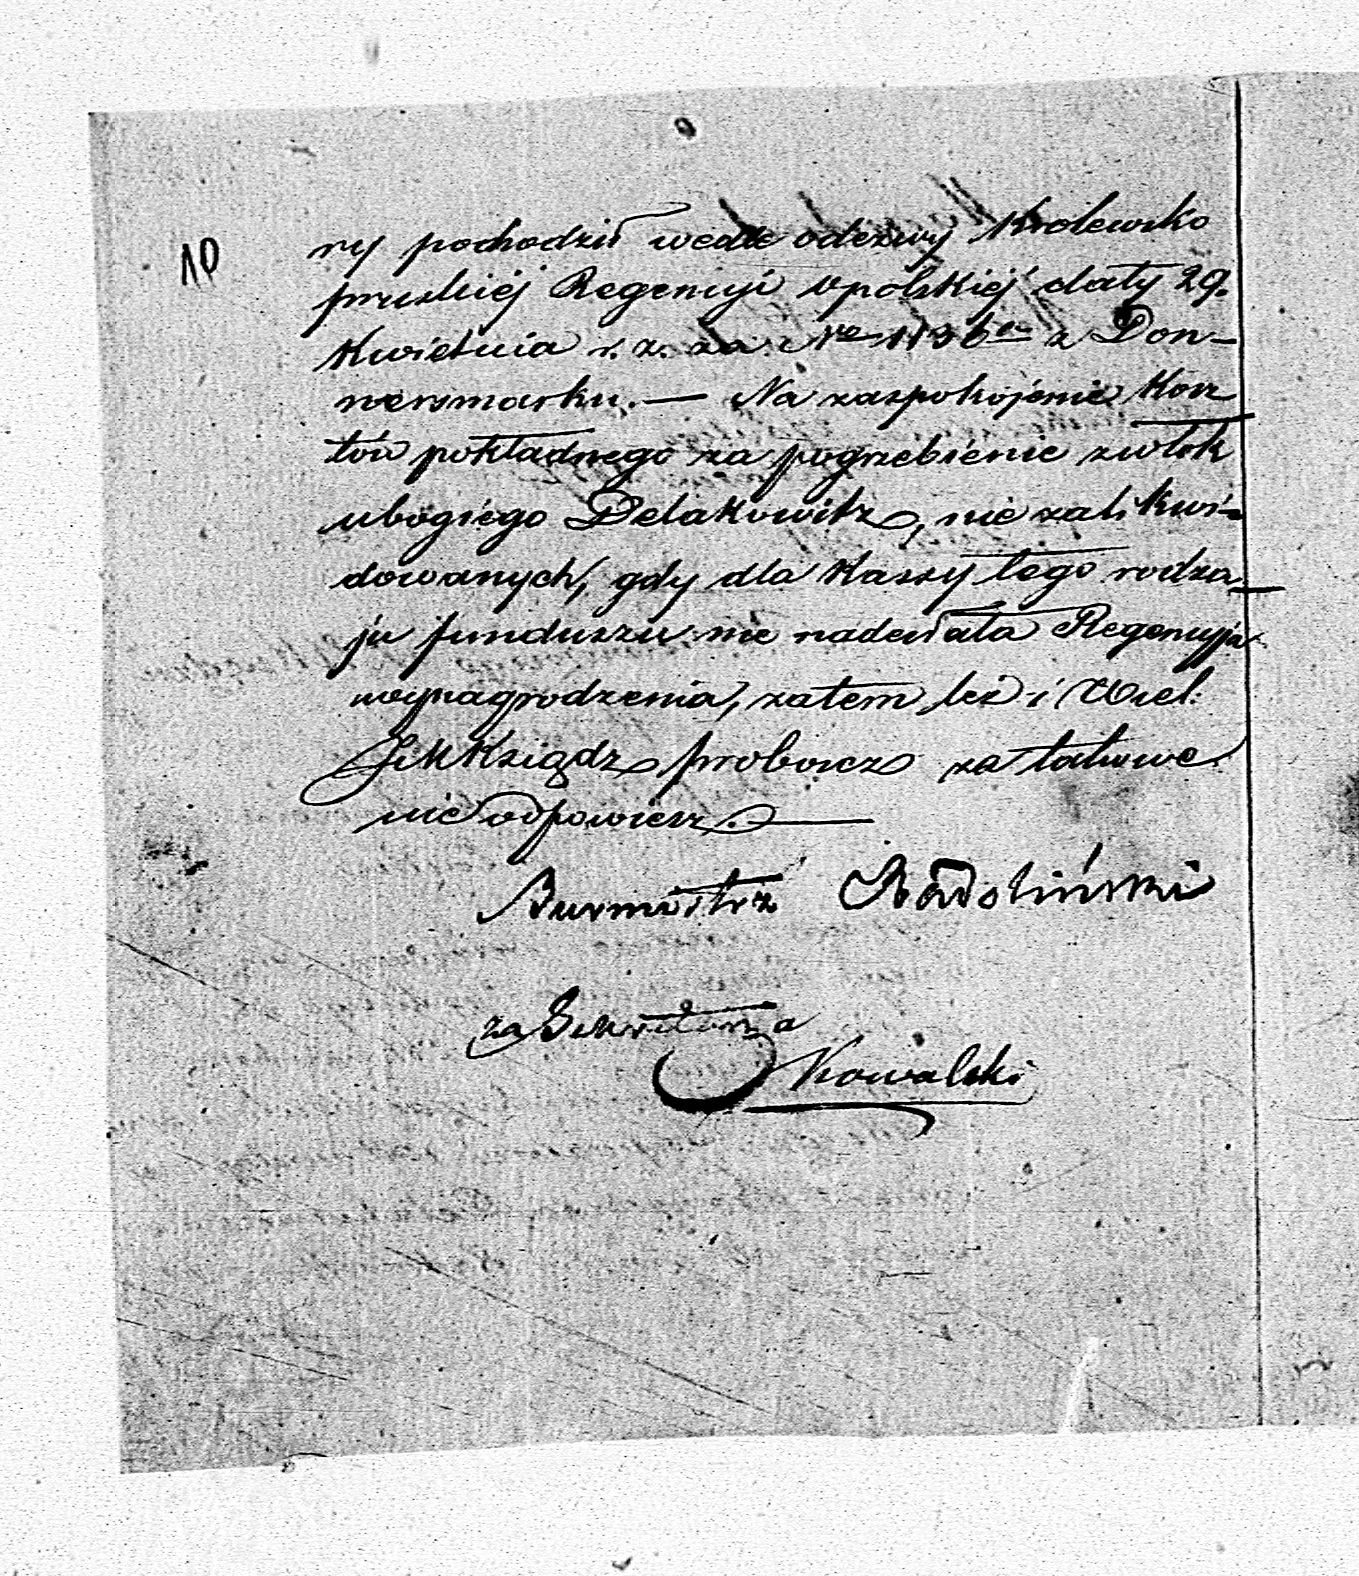 10
ry pochodził wedle odezwy Krolewsko
pruskiéj Regencyi opolskiéj daty 29.
Kwietnia r. z. za Nro 1136 z Don-
nersmarku. — Na zaspokojenie Kosz
tów pokładnego za pogrzebienie zwłok
ubogiego Pelakowitz, nie zalikwi-
dowanych, gdy dla Kassy tego rodza
ju funduszu nie nadesłała Regencyja
wynagrodzenia, zatem też i Wiel:
JM Ksiądz proboszcz za takowe
nie odpowiesz. —
Burmistrz
za Sekretarza
Kowalski